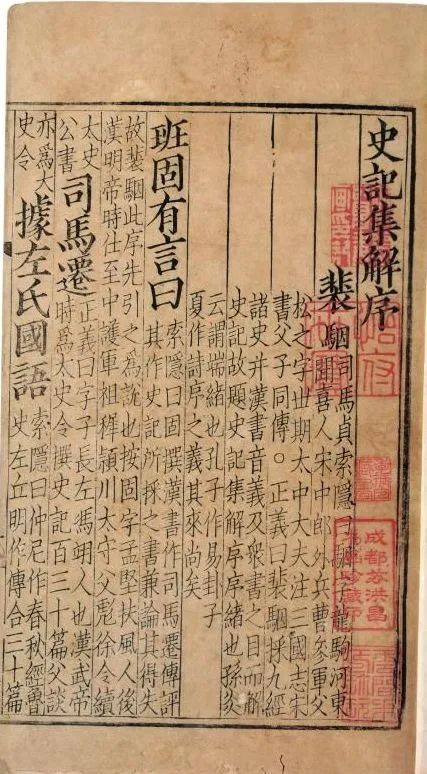 史記集解序
裴駰 司馬貞索隱曰駰字龍駒河東
聞喜人宋中郎外兵曹參軍父
松之字世期太中大夫注三國志宋
書父子同傳。正義曰裴駰採九經
諸史并漢書音義及衆書之目而解
史記故題史記集解序序緒也孫炎
云謂端緒也孔子作易卦子
夏作詩序之義其來尚矣
班固有言曰 索隱曰固撰漢書作司馬遷傳評
其作史記所採之書兼論其得失
故裴駰此序先引之為說也按固字孟堅扶風人後
漢明帝時仕至中護軍祖穉潁川太守父彪徐令續
太史
公書
司馬遷 正義曰字子長左馮翊人也漢武帝
時為太史令撰史記百三十篇父談
亦為大
史令
據左氏國語 索隱曰仲尼作春秋經魯
史左丘明作傳合三十篇